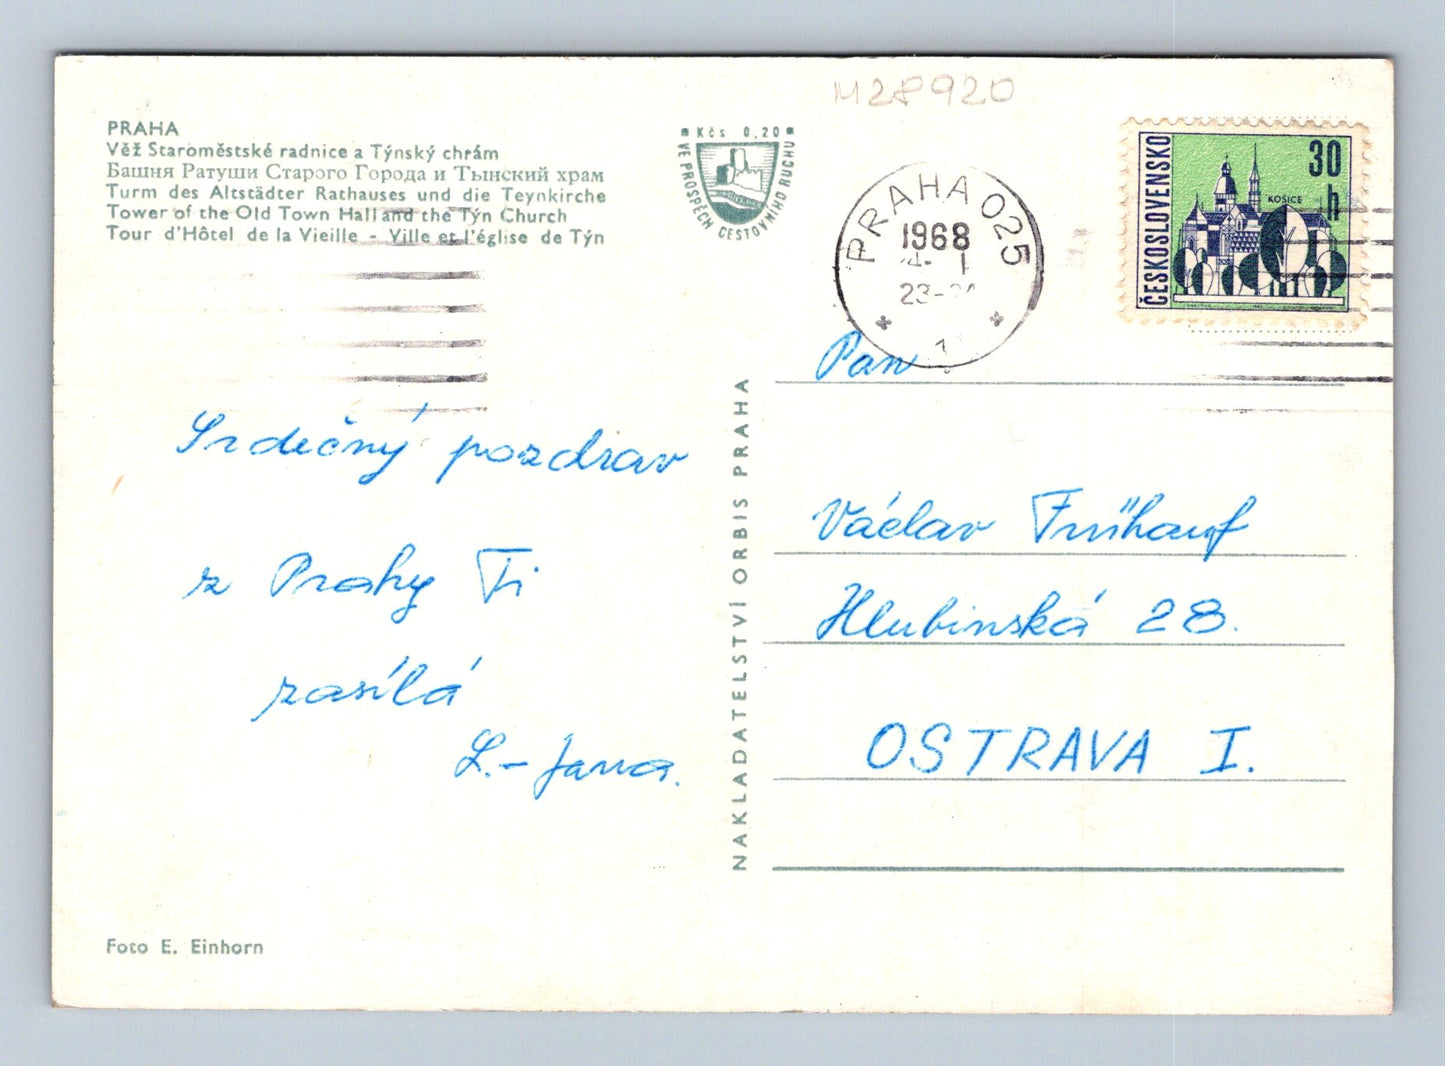 M28920
PRAHA
Věž Staroměstské radnice a Týnský chrám
Башня Ратуши Старого Города и Тынский храм
Turm des Altstädter Rathauses und die Teynkirche
Tower of the Old Town Hall and the Týn Church
Tour d'Hôtel de la Vieille - Ville et l'église de Týn
Kčs 0,20
VE PROSPĚCH CESTOVNÍHO RUCHU
PRAHA 025
1968
1
ČESKOSLOVENSKO
30 h
KOŠICE
Srdečný pozdrav
z Prahy Ti
zasílá
L.- Jana.
NAKLADATELSTVÍ ORBIS PRAHA
Pan
Václav Frühauf
Hlubinská 28.
OSTRAVA I.
Foto E. Einhorn